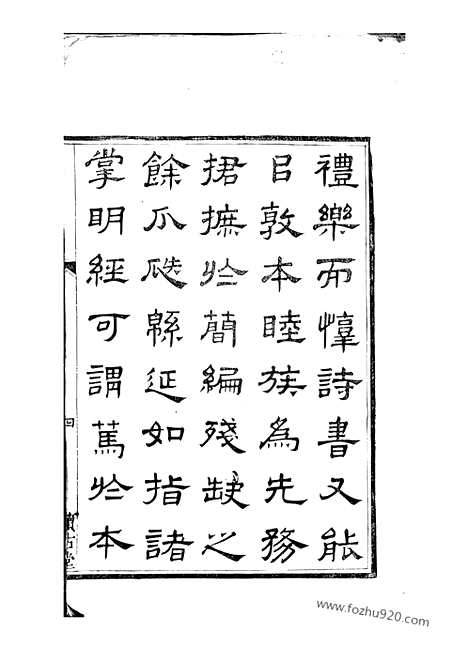 禮樂而惇詩書又能
㠯敦本睦族為先務
捃摭於蕳編殘缺之
餘瓜瓞緜延如指諸
掌明經可謂篤於本
四
www.fozhu920.com